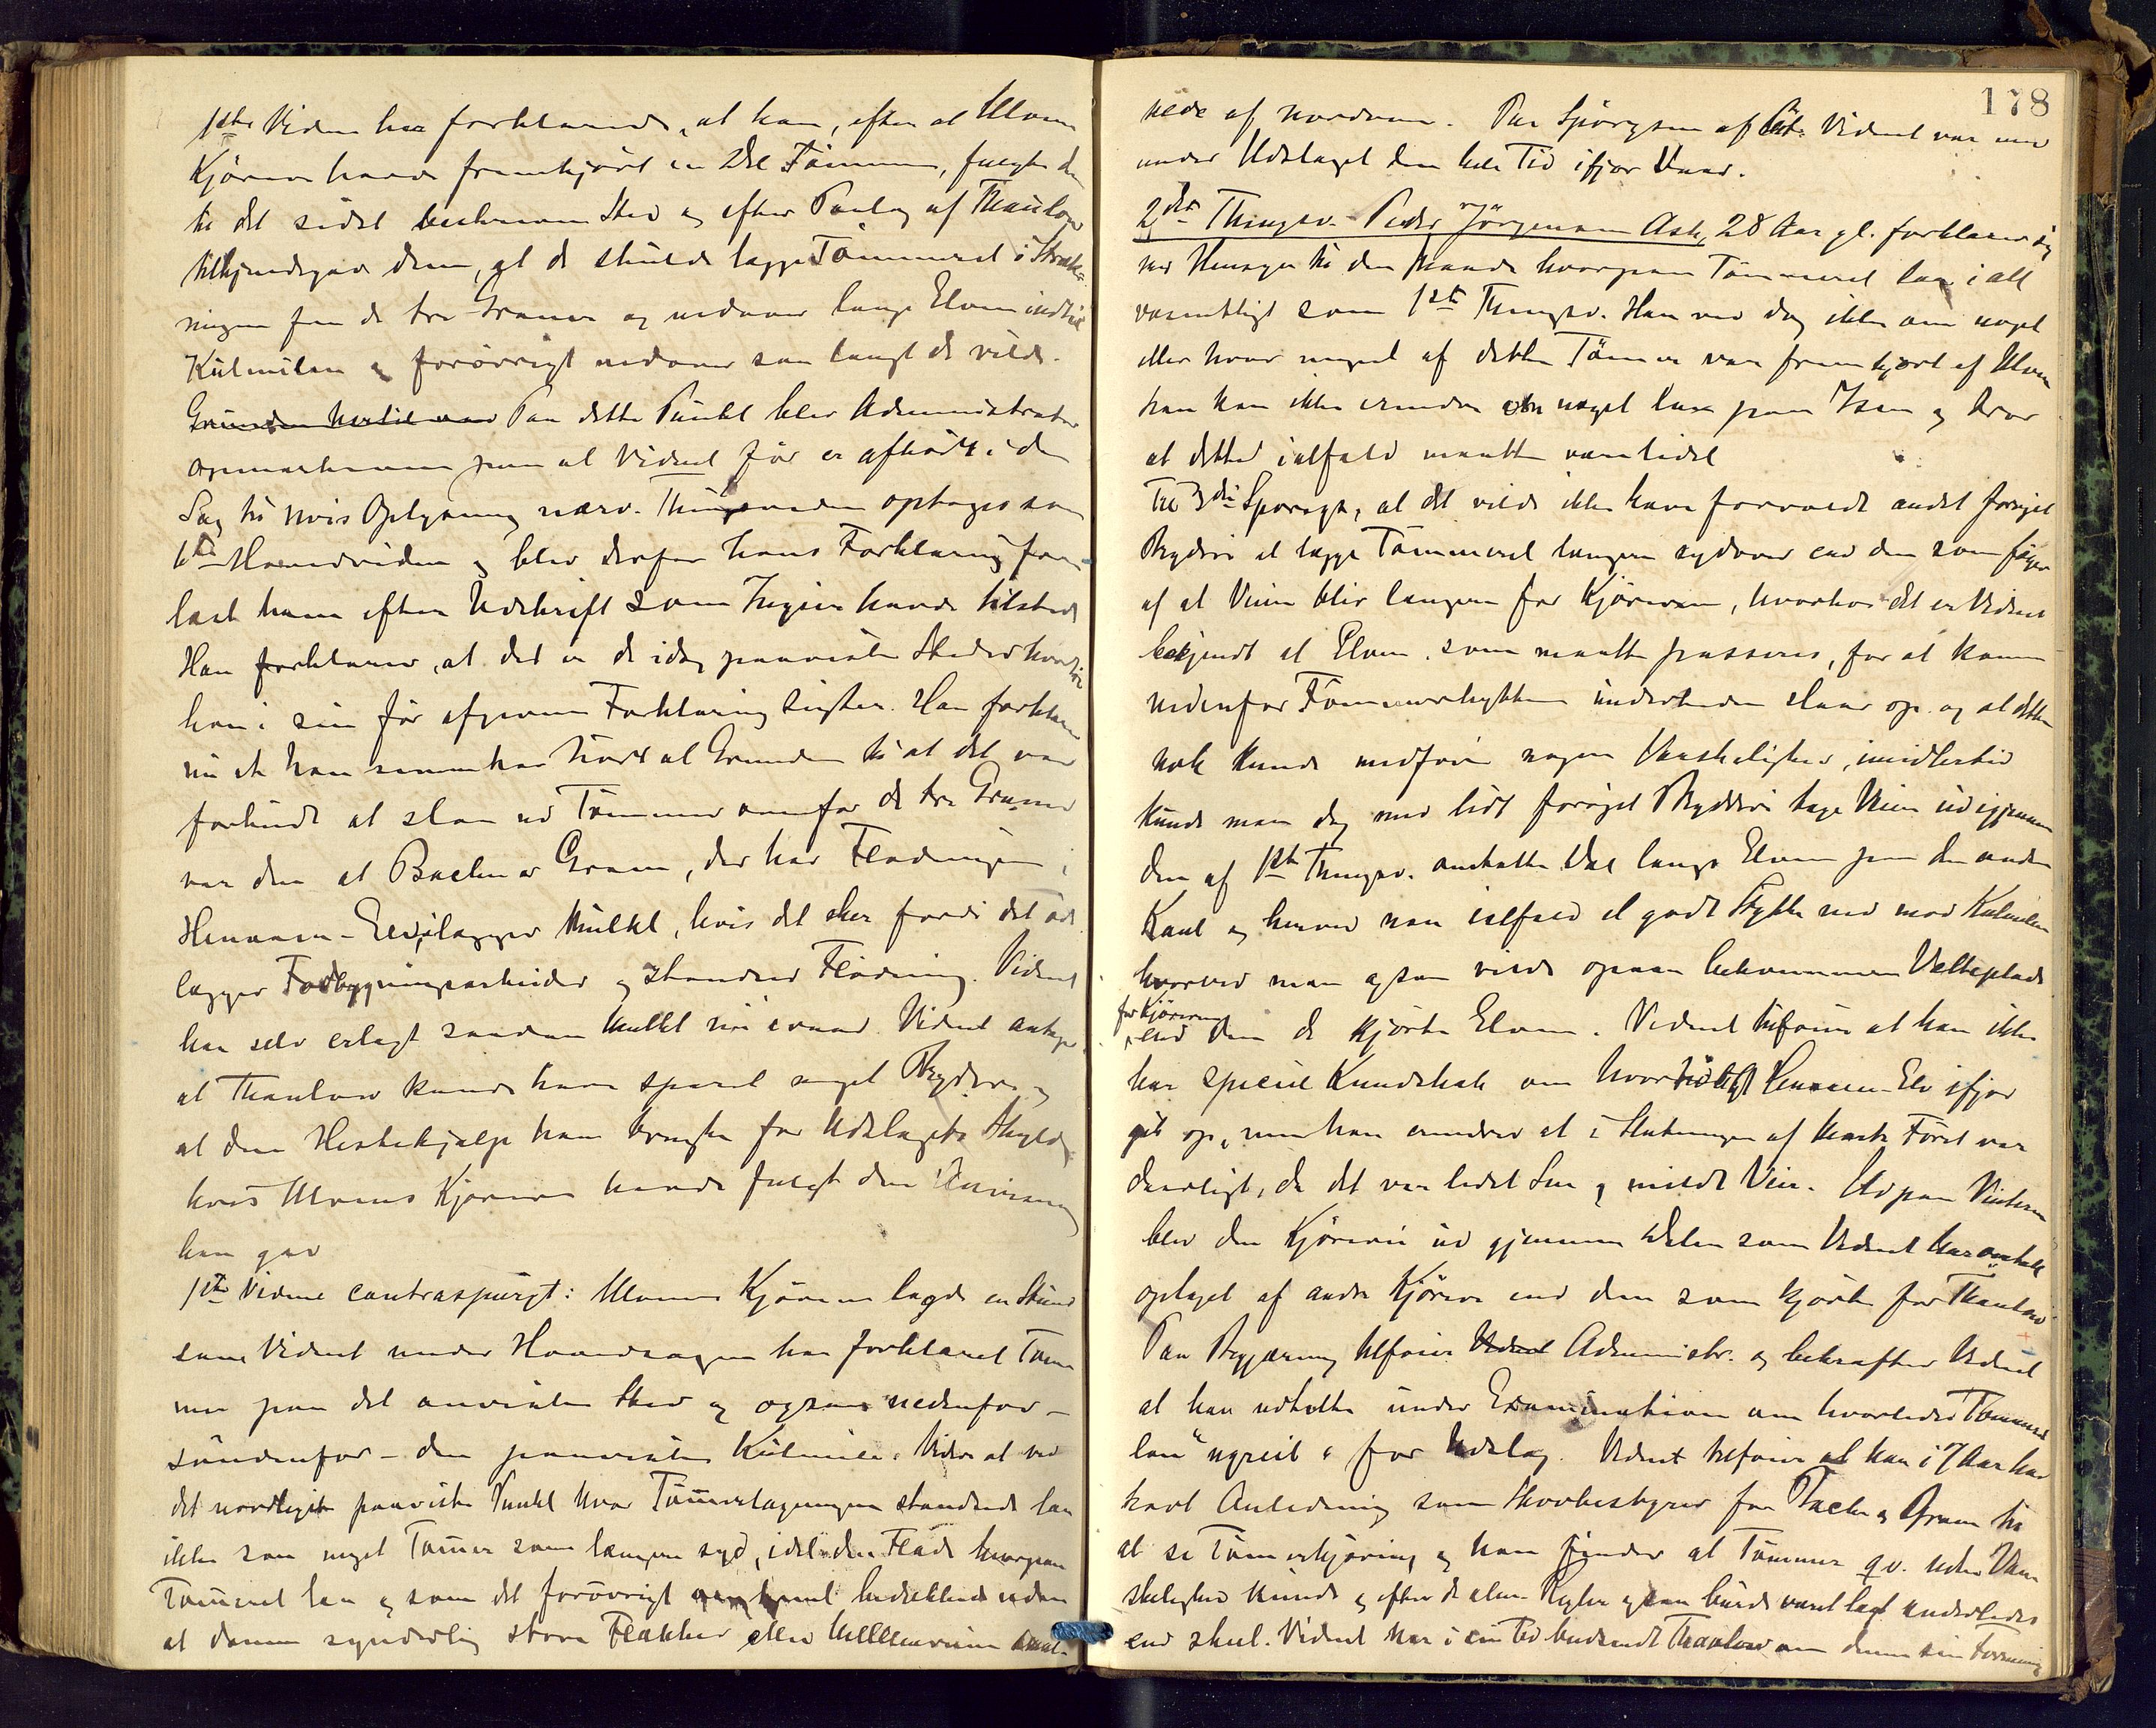 1ste Vidne har forklaret, at han, efter at Ulvens
Kjørere havde fremkjørt en Del Tømmer, fulgte dem
til det sidst beskrevne Sted og efter Paalæg af Thaulow
tilkjendegav dem, at de skulde lægge Tømmeret i Stræk-
ningen fra de tre Graner og nedover langs Elven indtil
Kulmilen og forøvrigt nedover saa langt de vilde.
Grunden hertil var Paa dette Punkt blev Administrator
opmærksom paa at Vidnet før er afhørt i den
Sag til hvis Oplysning nærv. Thingsvidne optages som
6te Hovedvidne og blev derfor hans Forklaring fore-
læst ham efter Udskrift som Ingier havde tilstede
Han forklarer, at det er de idag paaviste Steder hvortil
han i sin før afgivne Forklaring sigter. Han forklarer
nu at han senere har hørt at Grunden til at det var
forbudt at slaa ud Tømmer ovenfor de tre Graner
var den at Bache og Gram, der har Flødningen i
Henaaen-Elv, ilægger Mulkt, hvis det sker fordi det øde-
lægger Forbygningsarbeider og standser Flødning. Vidnet
har selv erlagt saadan Mulkt nu ivaar. Vidnet antager
at Thaulow kunde have sparet meget Rydderi og
at den Hestehjælp han brugte for Udslagets Skyld,
hvis Ulvens Kjørere havde fulgt den Anvisning
han gav
1ste Vidne contraspurgt: Ulvens Kjørere lagde en Stund
som Vidnet under Hovedsagen har forklaret Tøm-
mer paa det anviste Sted og ogsaa nedenfor –
søndenfor – den paaviste Kulmile. Videre at ved
det nordligste paaviste Punkt hvor Tømmerlægningen standsede laa
ikke saa meget Tømmer som længere syd, idet den Flade hvorpaa
Tømmeret laa og som det forøvrigt bedækkede uden
at danne synderlig store Flakker eller Mellemrum
178
nede af nordover. Paa Spørgsm. af Cit. Vidnet var med
under Udslaget den hele Tid ifjor Vaar.
2det Thingsv. Peder Jørgensen Ask, 28 Aar gl. forklarer sig
med Hensyn til den Maade hvorpaa Tømmeret laa i alt
væsentligt som 1ste Thingsv. Han ved dog ikke om noget
eller hvor meget af dette Tømmer var fremkjørt af Ulven
han kan ikke erindre om noget laa paa Isen og tror
at dette ialfald maatte være lidet
Til 3die Spørsgs, at det vilde ikke have forvoldt andet forøget
Rydderi at lægge Tømmeret længere sydover end den som følger
af at Veien blir længere for Kjørerne, hvorhos det er Vidnet
bekjendt at Elven, som maatte passeres, for at komme
nedenfor Tømmerstykket undertiden slaar op og at dette
nok kunde medføre nogen Vanskelighed, imidlertid
kunde man dog med lidt forøget Rydderi tage Veien ud igjennem
den af 1ste Thingsv. omtalte Dal langs Elven paa den anden
Kant og herved naa ialfald et godt Stykke ned mod Kulmilen
hvorved man ogsaa vilde opnaa bekvemmere Vælteplads
for Kjørerne
end den de kjørte Elven. Vidnet tilføier at han ikke
har speciel Kundskab om hvor tidligt Henaaen-Elv ifjor
gik op, men han erindrer at i Slutningen af Marts Føret var
daarligt, da det var lidet Sne og mildt Veir. Ud paa Vinteren
blev den Kjørevei ud gjennem Dalen som Vidnet har omtalt
optaget af andre Kjørere end dem som kjørte for Thaulow
Paa Begjæring tilføier Vidnet Administr. og bekræfter Vidnet
at han udtalte under Examination om hvorledes Tømmeret
laa "ugreit" for Udslag. Vidnet tilføier at han i 7 Aar har
havt Anledning som Skovbestyrer for Bache og Gram til
at se Tømmerkjøring og han finder at Tømmer qv. uden Van-
skelighed kunde og efter de alm. Regler ogsaa burde været lagt anderledes
end skeet. Vidnet har i sin Tid bebreidet Thaulow om denne sin Formening